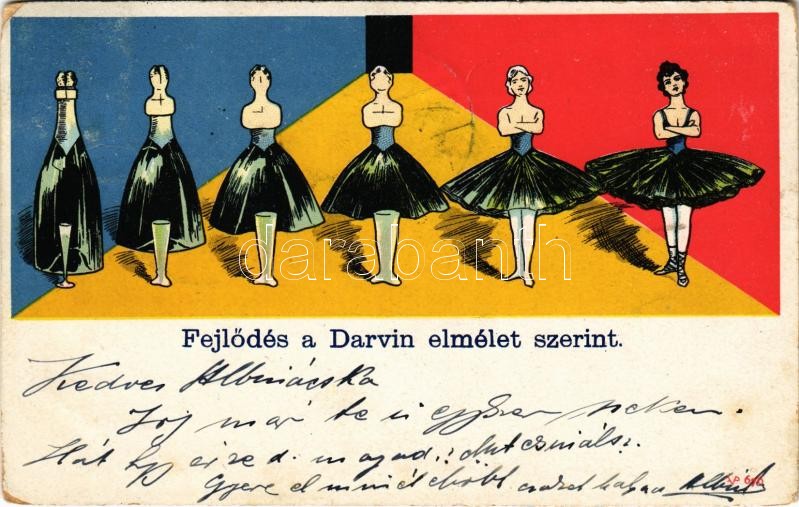 darabanth
Fejlődés a Darvin elmélet szerint.
Kedves Albinácska
Írj már te is egyszer nekem.
Hát hogy érzed magad? Mit csinálsz?
Gyere el minél előbb